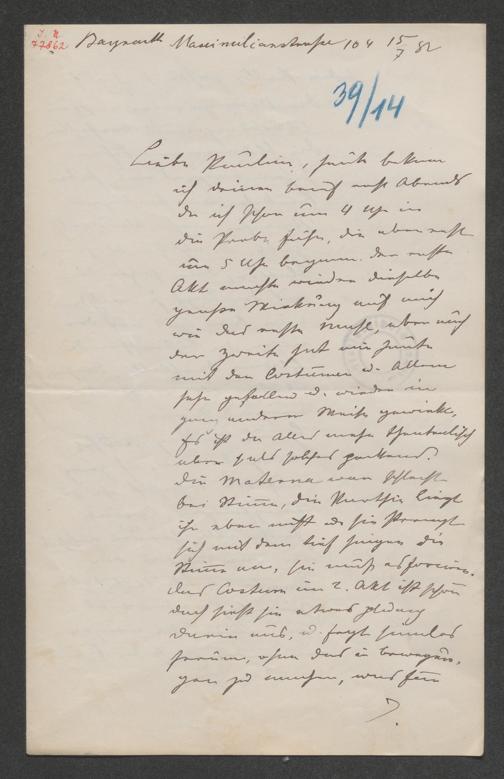 J. N.
77862
Bayreuth Maximilianstrasse 104 15/7 82
39/14
Liebe Paulin, heute bekam
ich deinen Brief erst Abends
da ich schon um 4 Uhr in
die Probe fuhr, die aber erst
um 5 Uhr begann. Der erste
Akt machte wieder dieselbe
große Wirkung auf mich
wie das erste Mal, aber auch
der zweite hat mir heute
mit den Costümen u. Allem
sehr gefallen u. wieder in
ganz anderer Weise gewirkt,
Es ist da Alles mehr theatralisch
aber als solches packend.
Die Materna war schlecht
bei Stimme, die Parthie liegt
ihr aber nicht u. sie strengt
sich mit dem tief singen die
Stimme an, sie muß es forciren.
das Costüm im 2. Akt ist schön
doch sieht sie etwas
darin aus, u.
herum, ohne das
zu machen, was